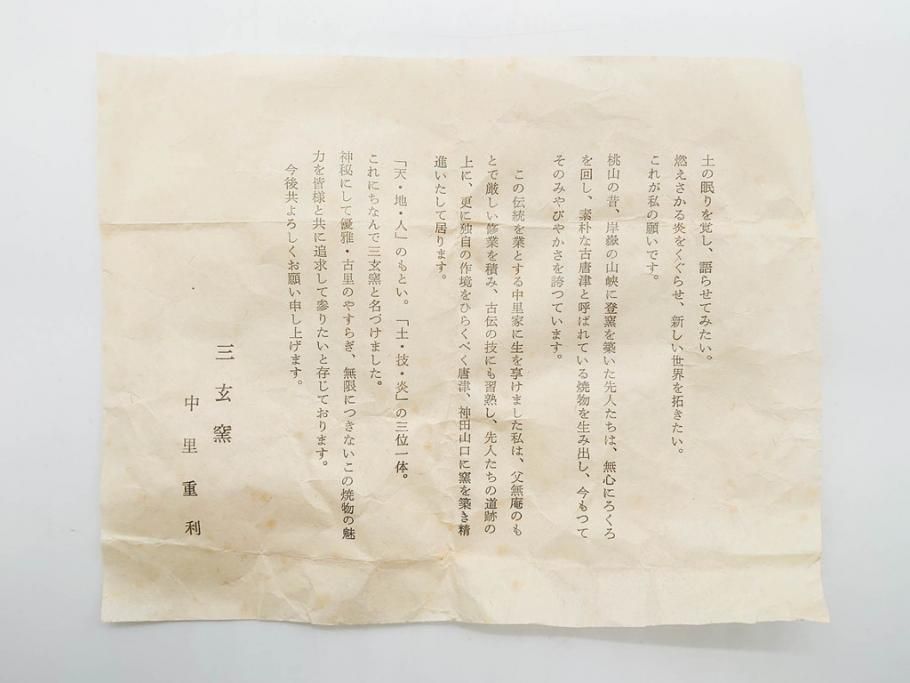 土の眠りを覚し、語らせてみたい。
燃えさかる炎をくぐらせ、新しい世界を拓きたい。
これが私の願いです。
桃山の昔、岸嶽の山峡に登窯を築いた先人たちは、無心にろくろ
を回し、素朴な古唐津と呼ばれている焼物を生み出し、今もつて
そのみやびやかさを誇つています。
この伝統を業とする中里家に生を享けました私は、父無庵のも
とで厳しい修業を積み、古伝の技にも習熟し、先人たちの道跡の
上に、更に独自の作境をひらくべく唐津、神田山口に窯を築き精
進いたして居ります。
「天・地・人」のもとい。「土・技・炎」の三位一体。
これにちなんで三玄窯と名づけました。
神秘にして優雅・古里のやすらぎ、無限につきないこの焼物の魅
力を皆様と共に追求して参りたいと存じております。
今後共よろしくお願い申し上げます。
三玄窯
中里重利